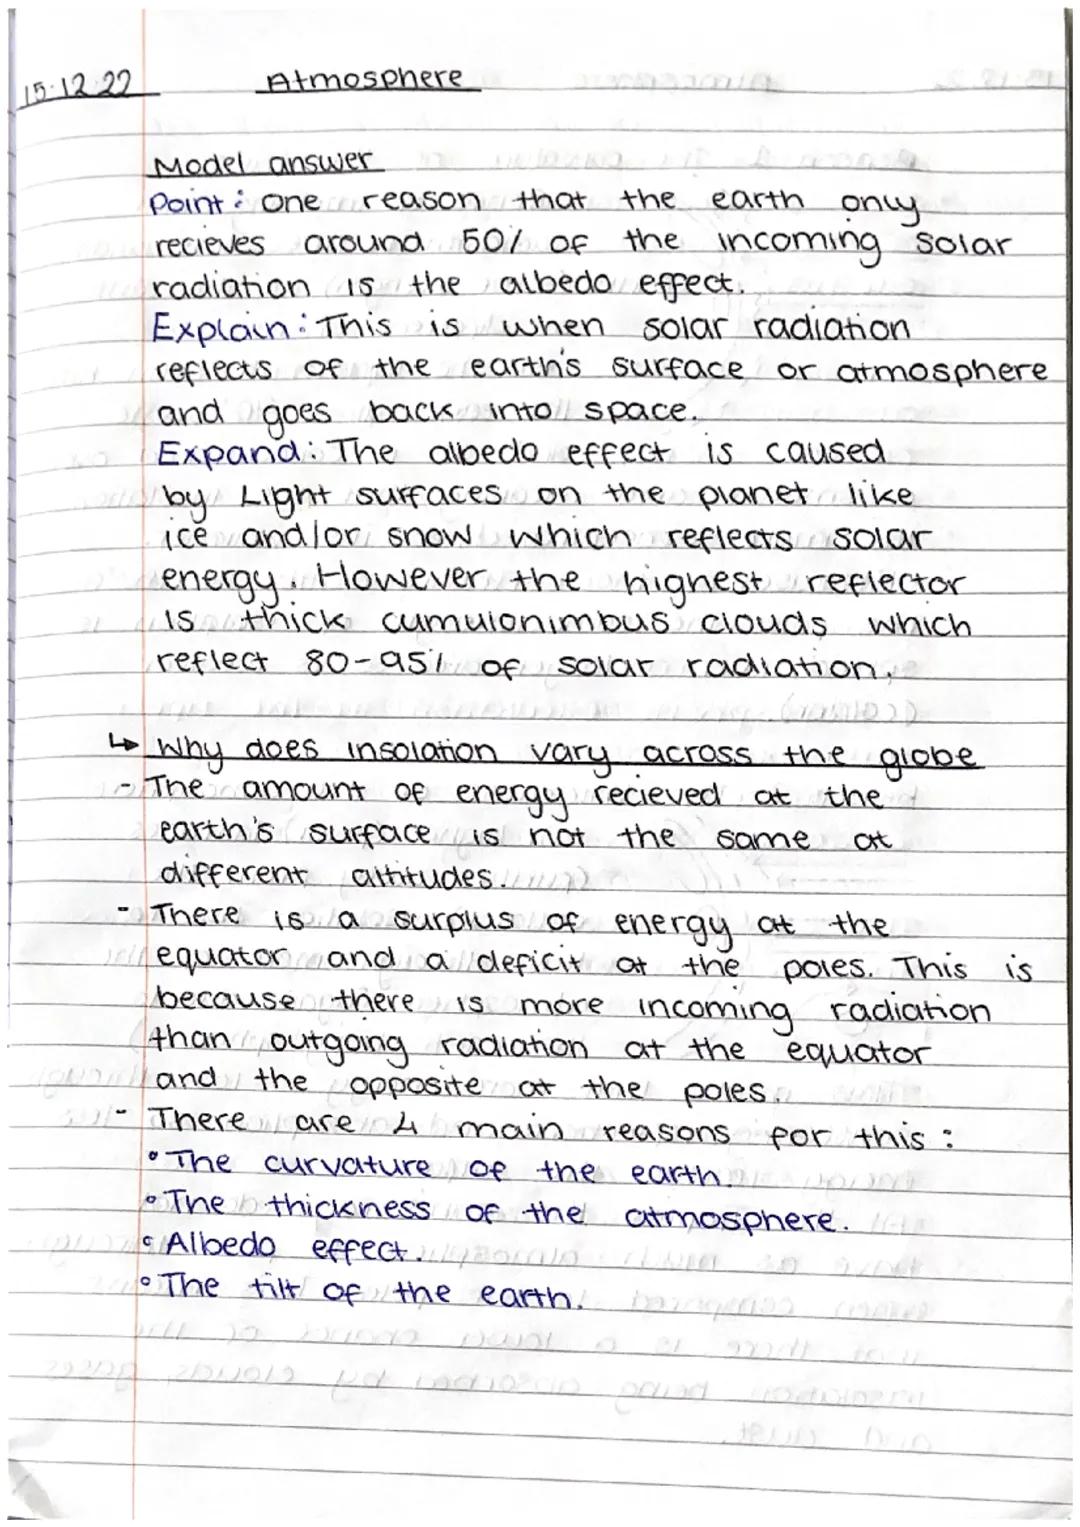 15.12.22
Atmosphere
Model answer
Point: One reason that the earth only
recieves around 50% of the incoming solar
radiation is the albedo effect.
Explain: This is when solar radiation
reflects of the earth's surface or atmosphere
and goes back into space.
Expand: The albedo effect is caused
by Light surfaces on the planet like
ice and/or snow which reflects solar
energy. However the highest reflector
is thick cumulonimbus clouds which
reflect 80-95% of solar radiation.
↳ Why does insolation vary across the globe
- The amount of energy recieved at the
earth's surface is not the same at
different altitudes.
- There is a surplus of energy at the
equator and a deficit at the poles. This is
because there is more incoming radiation
than outgoing radiation at the equator
and the opposite at the poles.
- There are 4 main reasons for this:
• The curvature of the earth.
• The thickness of the atmosphere.
• Albedo effect.
• The tilt of the earth.